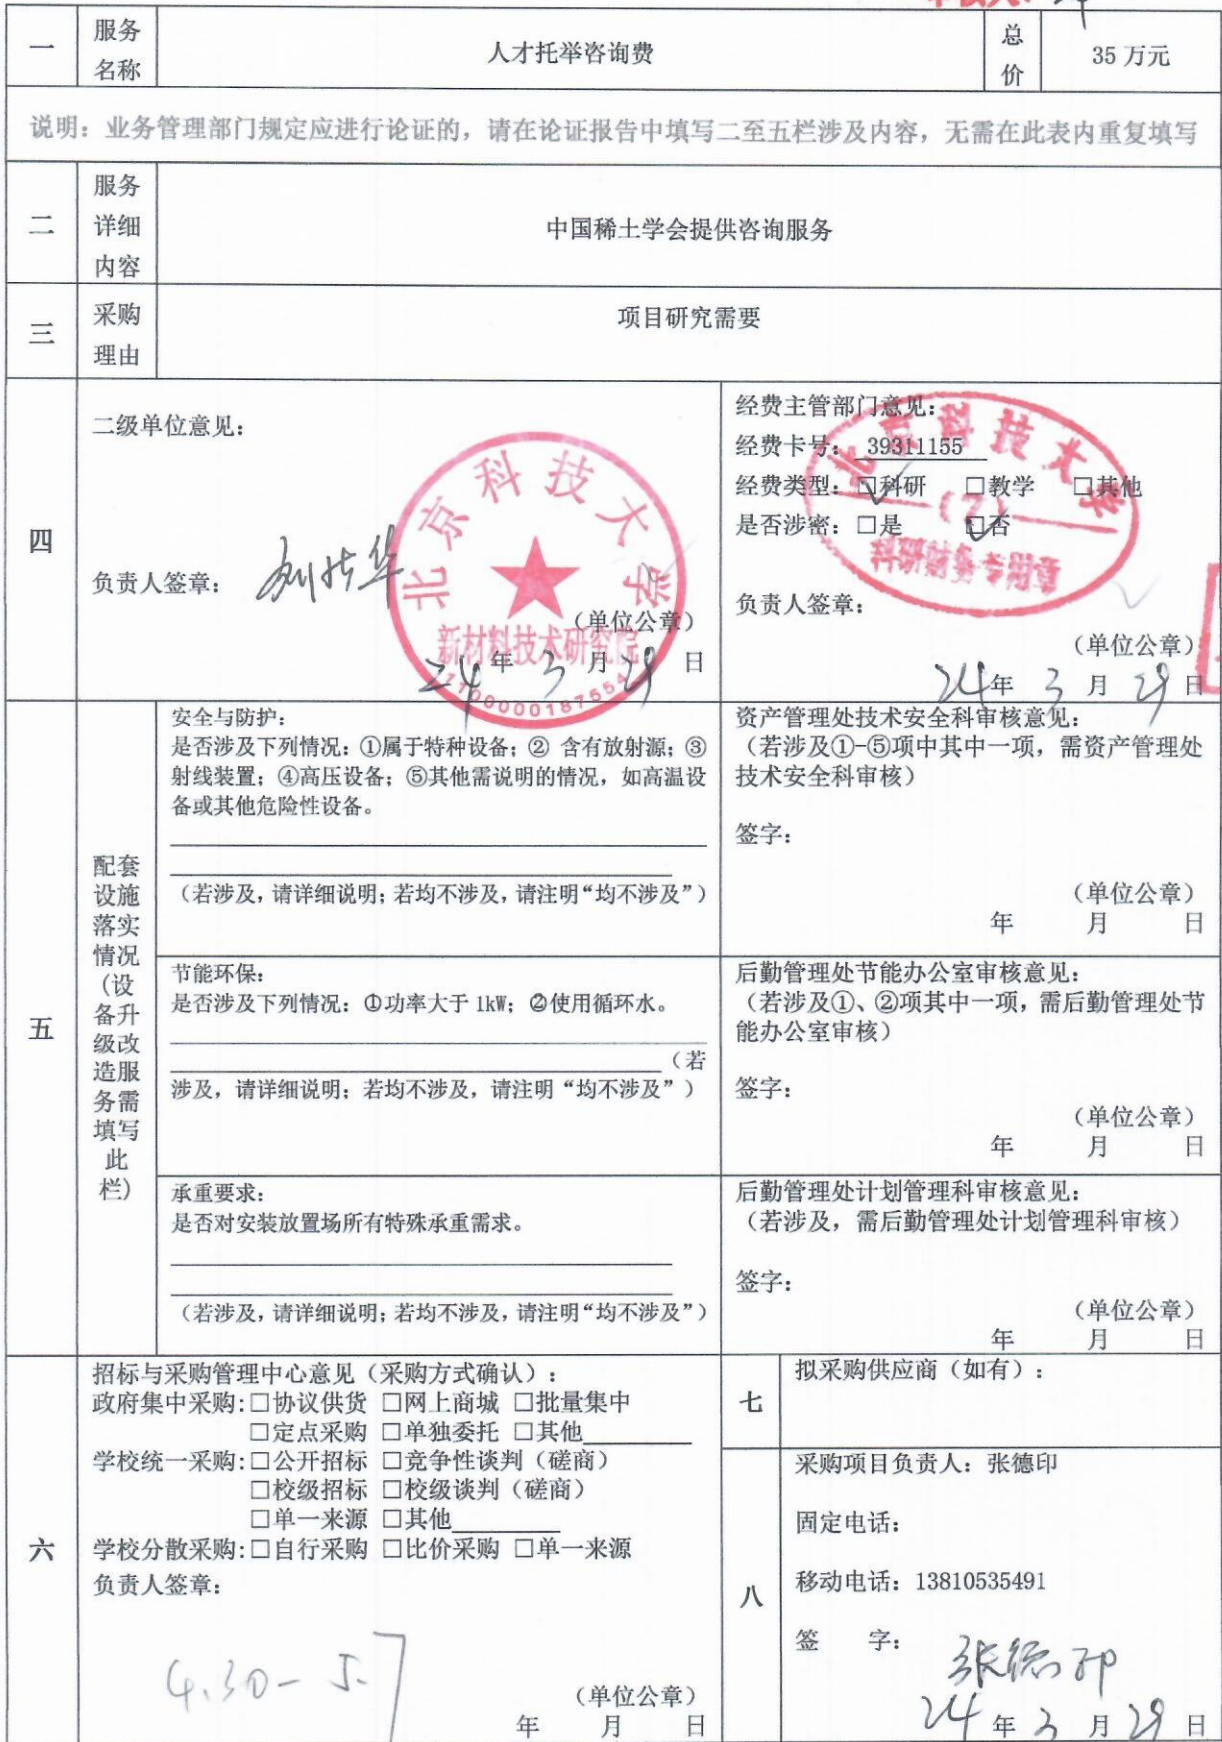 一
服务
名称
人才托举咨询费
总
价
35 万元
说明：业务管理部门规定应进行论证的，请在论证报告中填写二至五栏涉及内容，无需在此表内重复填写
二
服务
详细
内容
中国稀土学会提供咨询服务
三
采购
理由
项目研究需要
四
二级单位意见：
负责人签章：
北京科技大学
新材料技术研究院
（单位公章）
24年 3 月 29 日
经费主管部门意见：
经费卡号： 39311155
经费类型：☑科研 □教学 □其他
是否涉密：□是 ☑否
北京科技大学
（7）
科研财务专用章
负责人签章：
（单位公章）
24年 3 月 29 日
五
配套
设施
落实
情况
(设
备升
级改
造服
务需
填写
此
栏)
安全与防护：
是否涉及下列情况：①属于特种设备；② 含有放射源；③
射线装置；④高压设备；⑤其他需说明的情况，如高温设
备或其他危险性设备。
（若涉及，请详细说明；若均不涉及，请注明“均不涉及”）
资产管理处技术安全科审核意见：
（若涉及①-⑤项中其中一项，需资产管理处
技术安全科审核）
签字：
（单位公章）
年 月 日
节能环保：
是否涉及下列情况：①功率大于 1kW；②使用循环水。
（若
涉及，请详细说明；若均不涉及，请注明“均不涉及”）
后勤管理处节能办公室审核意见：
（若涉及①、②项其中一项，需后勤管理处节
能办公室审核）
签字：
（单位公章）
年 月 日
承重要求：
是否对安装放置场所有特殊承重需求。
（若涉及，请详细说明；若均不涉及，请注明“均不涉及”）
后勤管理处计划管理科审核意见：
（若涉及，需后勤管理处计划管理科审核）
签字：
（单位公章）
年 月 日
六
招标与采购管理中心意见（采购方式确认）：
政府集中采购:□协议供货 □网上商城 □批量集中
□定点采购 □单独委托 □其他
学校统一采购:□公开招标 □竞争性谈判（磋商）
□校级招标 □校级谈判（磋商）
□单一来源 □其他
学校分散采购:□自行采购 □比价采购 □单一来源
负责人签章：
4.30-5.7
（单位公章）
年 月 日
七
拟采购供应商（如有）：
八
采购项目负责人：张德印
固定电话：
移动电话：13810535491
签 字：
张德印
24年 3 月 29 日